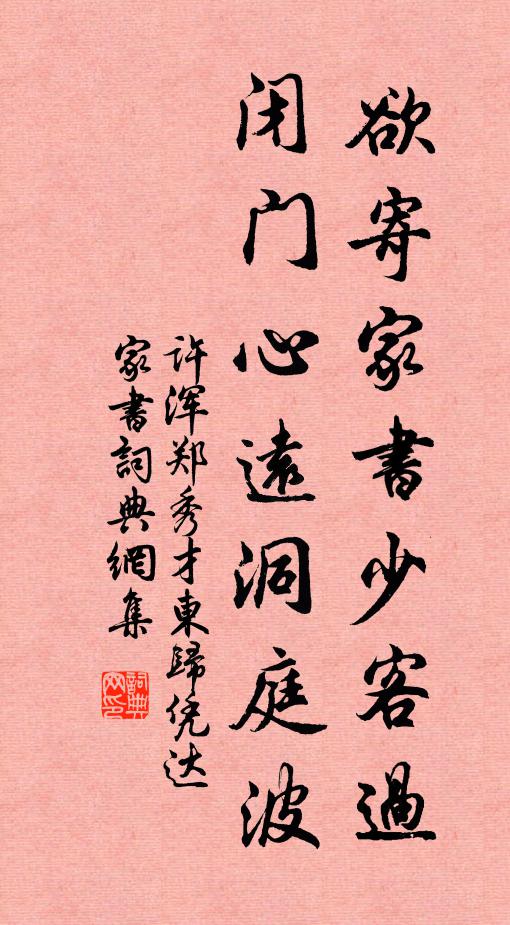 欲寄家書少客過
闭门心遠洞庭波
许浑郑秀才東歸凭达
家書詞典網集
詞典網印